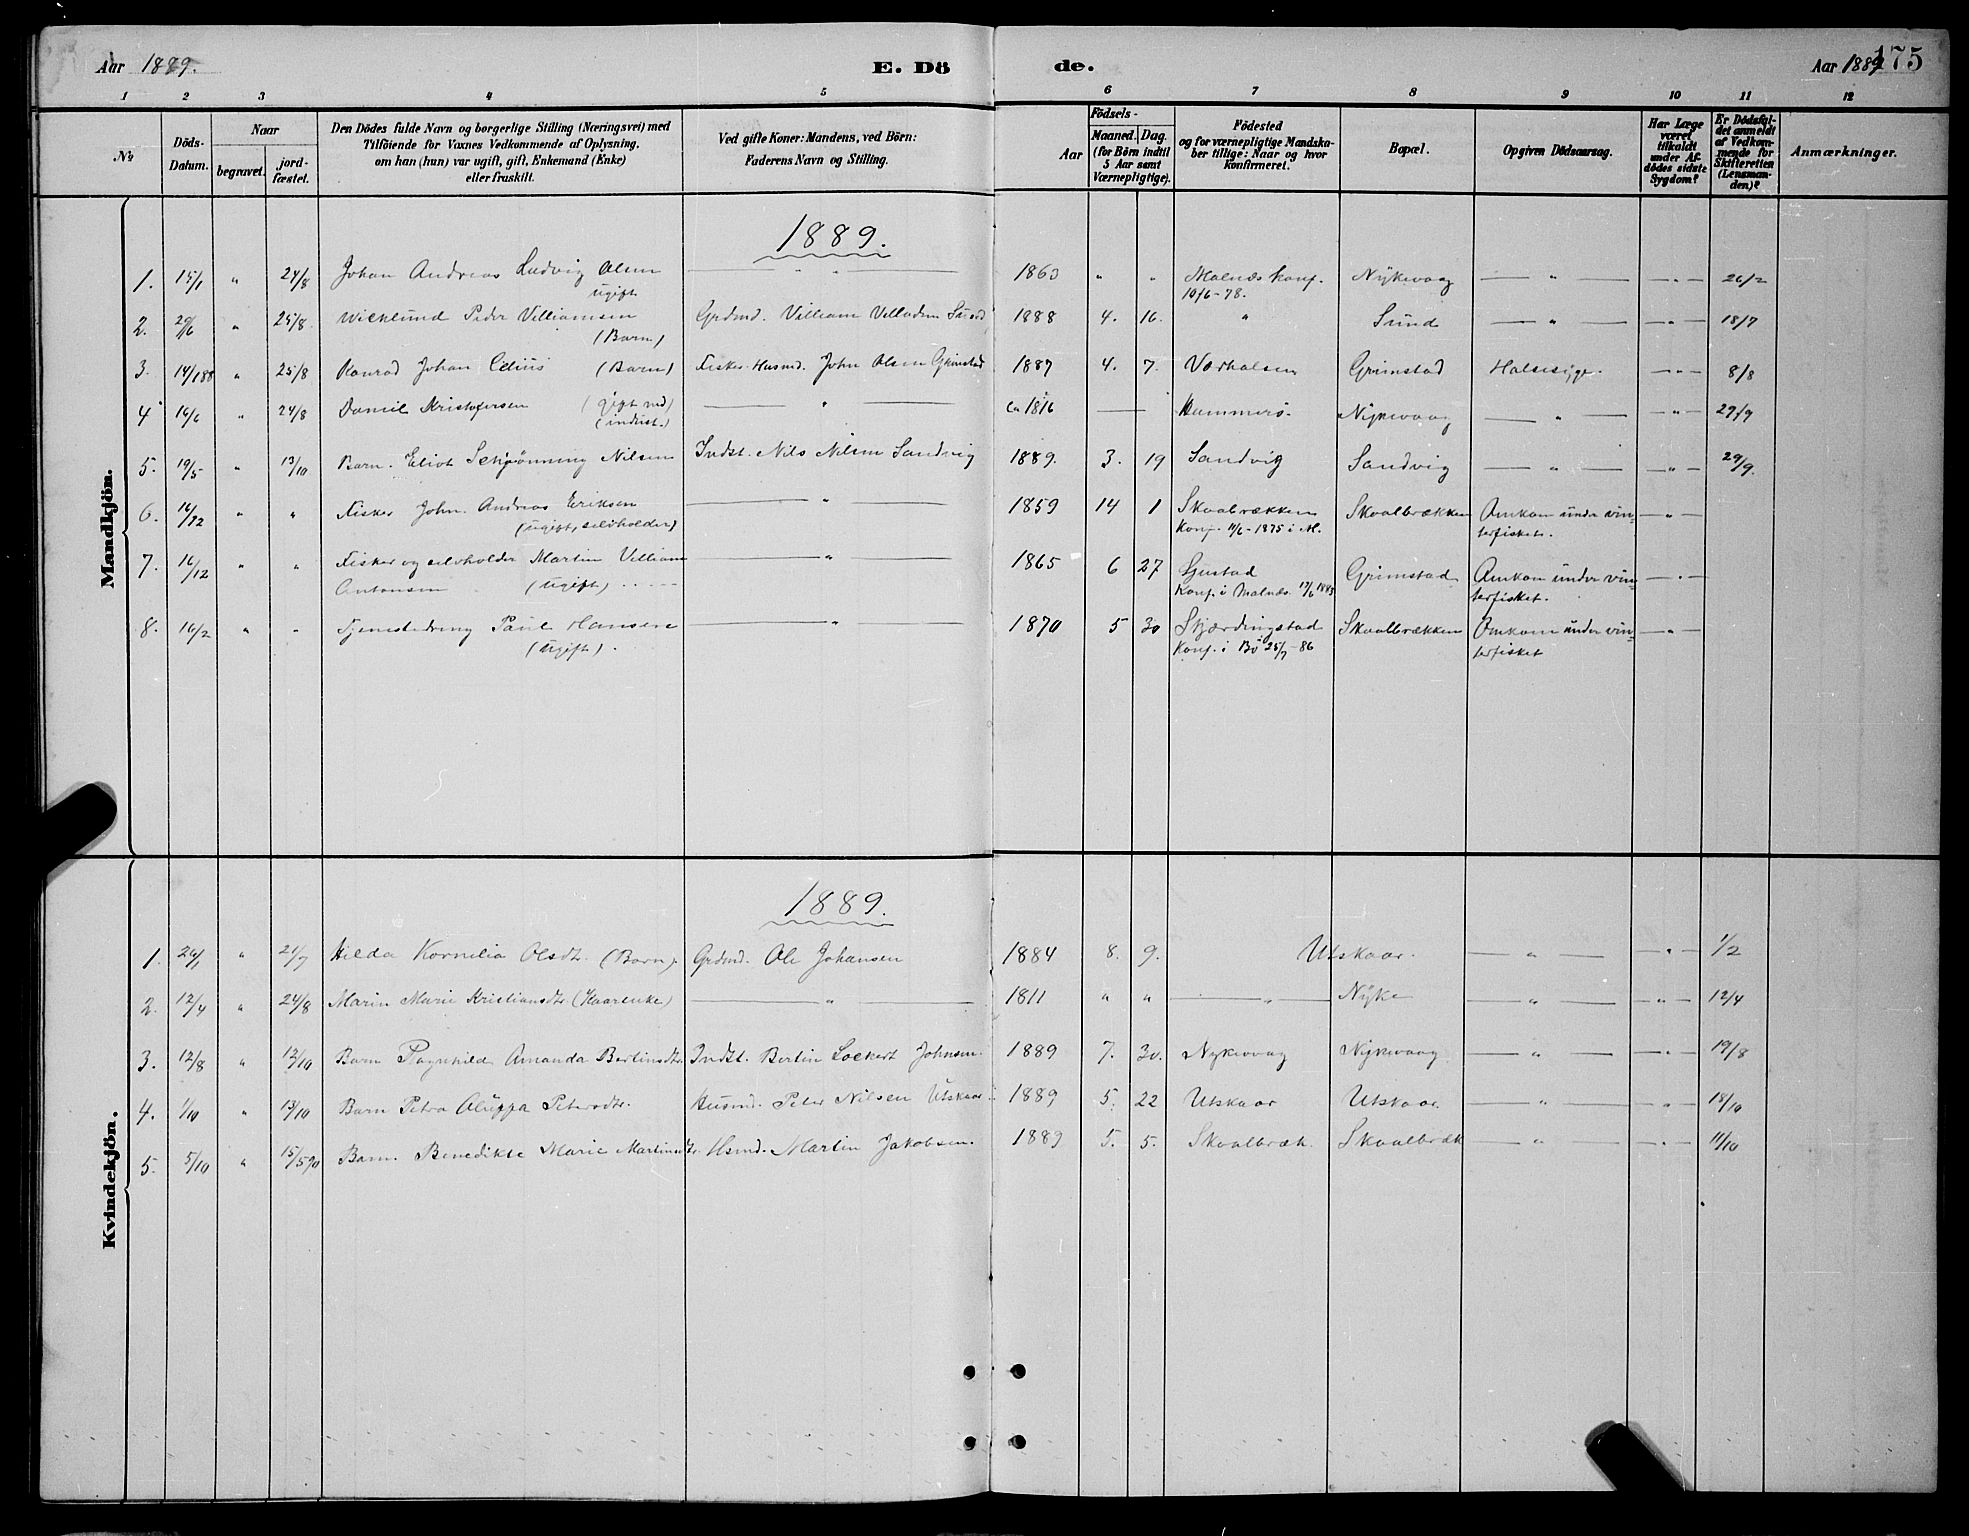 Aar 1889.
E. Dö
de.
Aar 1889
175
1 2 3 4 5 6 7 8 9 10 11 12
No
Döds-Datum.
Naar
begravet.
jord-fæstet.
Den Dödes fulde Navn og borgerlige Stilling (Næringsvei) med
Tilföiende for Voxnes Vedkommende af Oplysning,
om han (hun) var ugift, gift, Enkemand (Enke)
eller fraskilt.
Ved gifte Koner: Mandens, ved Börn:
Faderens Navn og Stilling.
Födsels-
Aar
Maaned. Dag.
(for Börn indtil
5 Aar samt
Værnepligtige).
Födested
og for værnepligtige Mandska-
ber tillige: Naar og hvor
konfirmeret.
Bopæl.
Opgiven Dödsaarsag.
Har Læge
været
tilkaldt
under Af-
dödes sidste
Sygdom?
Er Dödsfal-
det anmeldt
af Vedkom-
mende for
Skifteretten
(Lensman-
den)?
Anmærkninger.
Mandkjön.
1889.
1. 15/1 " 24/8 Johan Andreas Ludvig Olsen — " " — 1863 " " Malnæs konf. Nykvaag — " — — " — 26/2
ugift 10/6-78.
2. 29/6 " 25/8. Wicklund Peder Villiamsen Grdmd. Villiam Villadsen Sund 1888 4. 16. " Sund — " — — " — 18/7
(Barn)
3. 14/1 88 " 25/8 Konrad Johan Celius (Barn) Fisker. Husmd. John Olsen Grimstad 1887 4. 7. Vorhalsen Grimstad Halsesyge. — " — 8/8
4 16/6 " 24/8 Daniel Kristofersen (gift md) — " — ca 1816 — Hammerö. Nykvaag — " — — " — 27/9
(indust.)
5. 19/5 " 13/10 Barn. Eliot Schjönning Nilsen Indst. Nils Nilsen Sandvig 1889. 3. 19 Sandvig Sandvig — " — — " — 29/9.
6. 16/12 " " Fisker John. Andreas Eriksen — " — 1859 14 1 Skaalbrækken Skaalbrækken Omkom under vin-
(ugift, selvholden) Konf. 11/6-1875 i M. terfisket.
7. 16/12 " " Fisker og selvholder Martin Villiam — " — 1865 6 27 Gustad Grimstad Omkom under vin- — " —
Antonsen (ugift) Konf. i Malnæs 17/6 1883 terfisket.
8. 16/2 " " Tjenestedreng Paul Hansen — " — 1870 5 30 Skjærdingstad Skaalbrækken Omkom under vin- — " —
(ugift). Konf. i Bö 25/7-86 terfisket
Kvindekjön.
1889.
1. 24/1 " 21/7 Hilda Kornelia Olsdt. (Barn). Grdmd. Ole Johansen 1884 8. 9. Utskaar. — " — — " — 1/2
2. 12/4 " 24/8 Marin Marie Kristiansdtr. — " — 1811 " " — " — Nyke — " — — " — 12/4
3. 12/8 " 13/10 Barn Ragnhild Amanda Bertinsdtr. Indst. Bertin Lockert Johnsen. 1889 7. 30. Nykvaag Nykvaag — " — — " — 19/8
4. 1/10 " 13/10 Barn Petra Petersdtr. Husmd. Peter Nilsen Utskaar 1889 5. 22 Utskaar Utskaar. — " — " 18/10
5. 5/10 " 15/5 90 Barn. Benedikte Marie Martinsdtr. Hsmd. Martin Jakobsen. 1889 5. 5. Skaalbræk. Skaalbræk — " — — " — 11/10